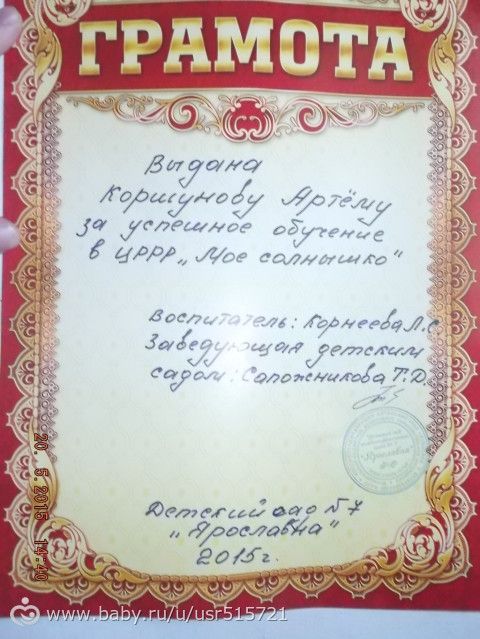 ГРАМОТА
Выдана
Коршунову Артёму
за успешное обучение
в ЦРРР „Мое солнышко"
воспитатель: Корнеева Л.С
Заведующая детским
садом: Сапожникова Т.Д.
"Ярославна"
Детский сад № 7
„Ярославна"
2015г.
20.5.2015 14:40
www.baby.ru/u/usr515721